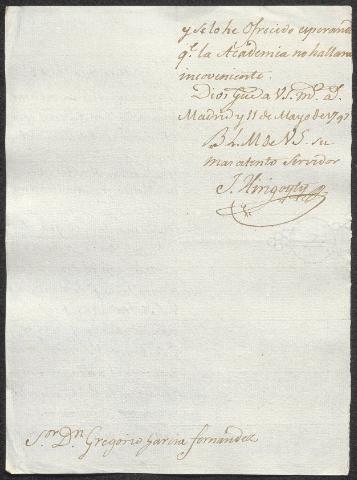 y se lo he Ofrecido esperando
q.e la Academia no hallara
incoveniente.
Dios Gue a V.S. m.s a.s
Madrid y 11 de Mayo de 1797
B L M de V.S. su
mas atento Servidor
J. Hirigoyty
S.or D.n Gregorio Garcia fernandez